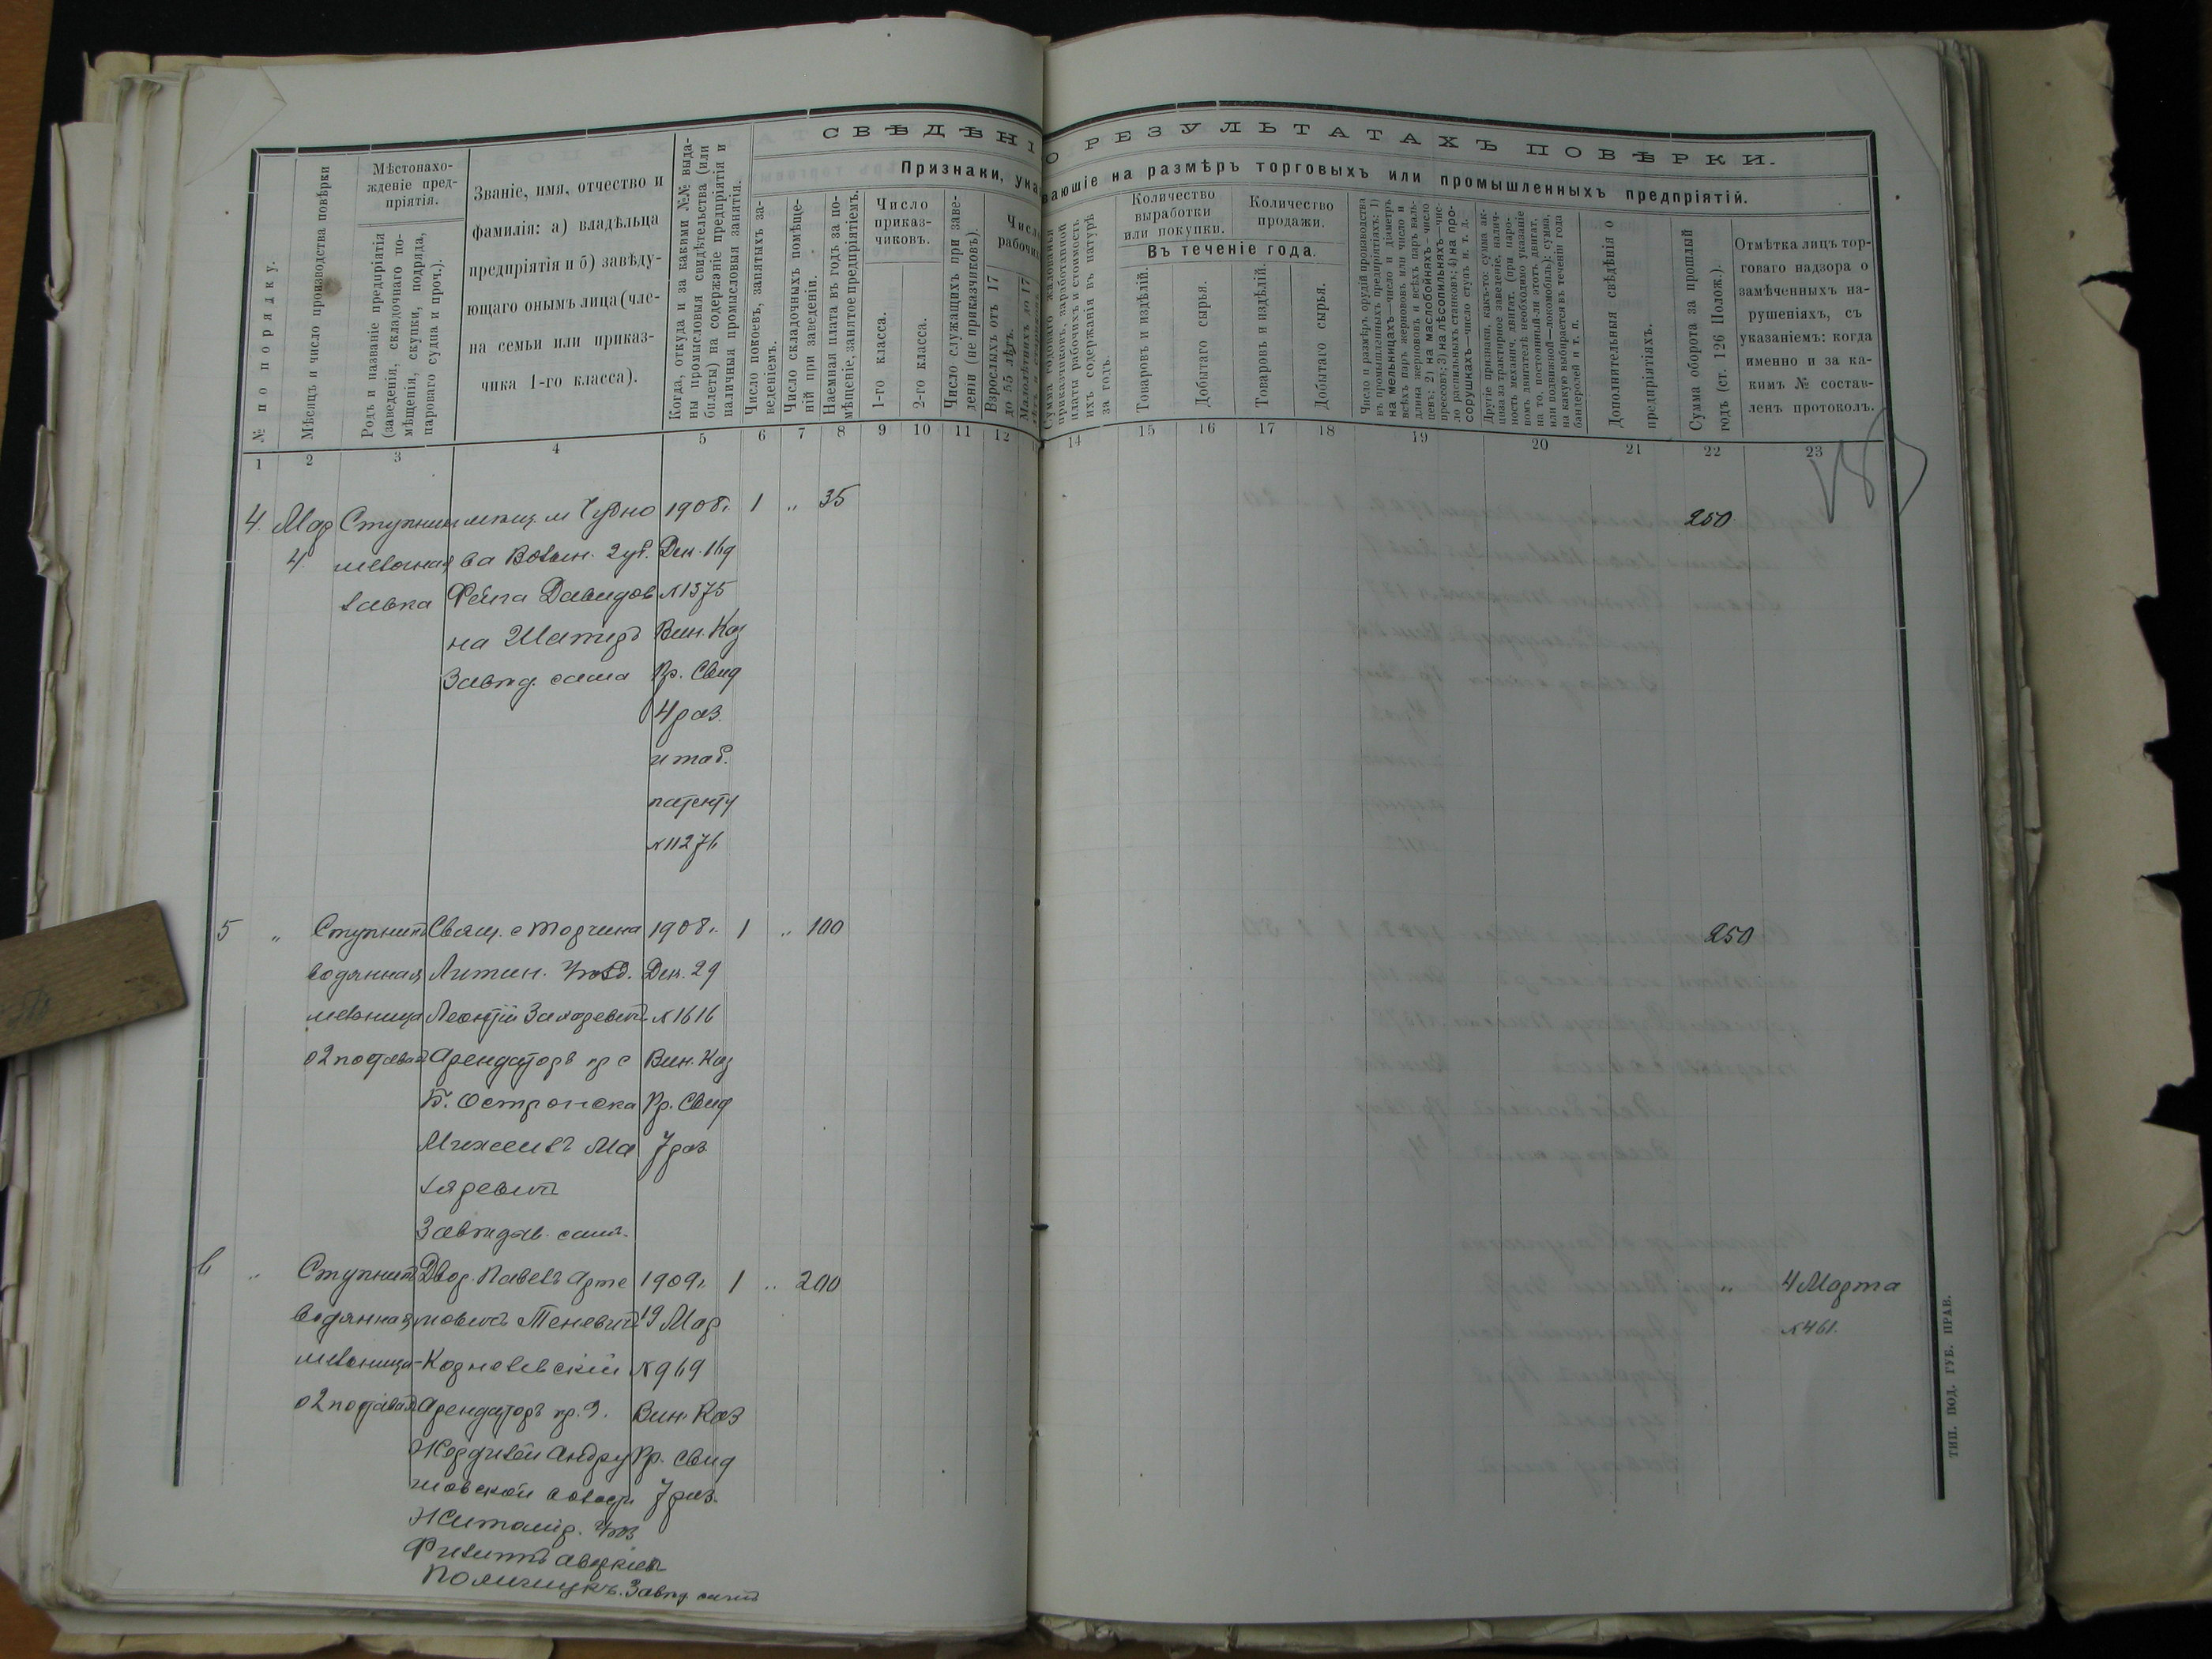 СВѢДѢНІ
О РЕЗУЛЬТАТАХЪ ПОВѢРКИ.
Признаки, ука
вающіе на размѣръ торговыхъ или промышленныхъ предпріятій.
№ по порядку.
Мѣсяцъ и число производства повѣрки
Мѣстонахо-
жденіе пред-
пріятія.
Родъ и названіе предпріятія
(заведенія, складочнаго по-
мѣщенія, скупки, подряда,
пароваго судна и проч.).
Званіе, имя, отчество и
фамилія: а) владѣльца
предпріятія и б) завѣду-
ющаго онымъ лица (чле-
на семьи или приказ-
чика 1-го класса).
Когда, откуда и за какими №№ выда-
ны промысловыя свидѣтельства (или
билеты) на содержаніе предпріятія и
наличныя промысловыя занятія.
Число покоевъ, занятыхъ за-
веденіемъ.
Число складочныхъ помѣще-
ній при заведеніи.
Наемная плата въ годъ за по-
мѣщеніе, занятое предпріятіемъ.
Число
приказ-
чиковъ.
1-го класса.
2-го класса.
Число служащихъ при заве-
деніи (не приказчиковъ).
Число
рабочихъ
Взрослыхъ отъ 17
до 55 лѣтъ.
Малолѣтнихъ до 17
Сумма годового жалованья
приказчиковъ, заработанной
платы рабочихъ и стоимость
ихъ содержанія въ натурѣ
за годъ.
Количество
выработки
или покупки.
Количество
продажи.
Въ теченіе года.
Товаровъ и издѣлій.
Добытаго сырья.
Товаровъ и издѣлій.
Добытаго сырья.
Число и размѣръ орудій производства
въ промышленныхъ предпріятіяхъ: 1)
на мельницахъ—число и діаметръ
всѣхъ паръ жернововъ или число и
длина жернововъ и всѣхъ паръ валь-
цевъ; 2) на маслобойняхъ—число
прессовъ; 3) на лѣсопильняхъ—чис-
ло распильныхъ станковъ; 4) на про-
сорушкахъ—число ступъ и т. д.
Другіе признаки, какъ-то: сумма ак-
циза за трактирное заведеніе, налич-
ность механич. двигат. (при паро-
вомъ двигателѣ необходимо указаніе
на то, постоянный-ли этотъ двигат.
или подвижной—локомобиль); сумма,
на какую выбирается въ теченіи года
бандеролей и т. п.
Дополнительныя свѣдѣнія о
предпріятіяхъ.
Сумма оборота за прошлый
годъ (ст. 126 Полож.).
Отмѣтка лицъ тор-
говаго надзора о
замѣченныхъ на-
рушеніяхъ, съ
указаніемъ: когда
именно и за ка-
кимъ № состав-
ленъ протоколъ.
1 2 3 4 5 6 7 8 9 10 11 12 14 15 16 17 18 19 20 21 22 23
4. Мар Ступник мѣщ. м Чудно 1908г. 1 „ 35 250
4 мелочная ва Волын. губ. Дек. 16д
лавка Фейга Давидов №1375
на Шатцъ Вин. Каз
Завѣд. сама Пр. Свид
4 раз.
и таб.
патенту
№11276
5 „ Ступникъ Свящ. с Торчина 1908г. 1 „ 100 250
водянная Литин. Уѣзд. Дек. 29
мельница Леонтій Захаревичъ №1616
о 2 поставахъ Арендаторъ кр с Вин. Каз
Б. Острожка Пр. Свид
Михаилъ Ма 7 раз
ляревичъ
Завѣдыв. самъ.
6 „ Ступникъ Двор. Павелъ Арте 1909г. 1 „ 200 „ 4 Марта
водянная мовичъ Теневичъ 19 Мар №461.
мельница Корнелевскій №969
о 2 поставахъ Арендаторъ кр. Вин. Каз
Андру Пр. Свид
шовской волости 7 раз.
Житомір. Уѣз
Филиппъ Аверкіевъ
Полищукъ. Завѣд. самъ
ТИП. ПОД. ГУБ. ПРАВ.